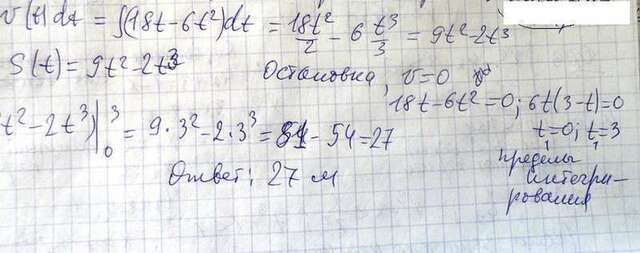 v(t)dt = ∫(18t-6t²)dt = 18t²/2 - 6 t³/3 = 9t²-2t³
S(t) = 9t²-2t³
Остановка, v=0
18t-6t²=0; 6t(3-t)=0
t²-2t³)|₀³ = 9·3²-2·3³ = 81-54=27
t=0; t=3
пределы
интегри-
рования
Ответ: 27 м